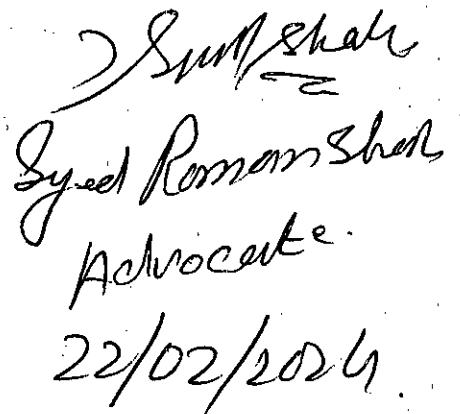 Shah
Syed Roman Shah
Advocate.
22/02/2024.